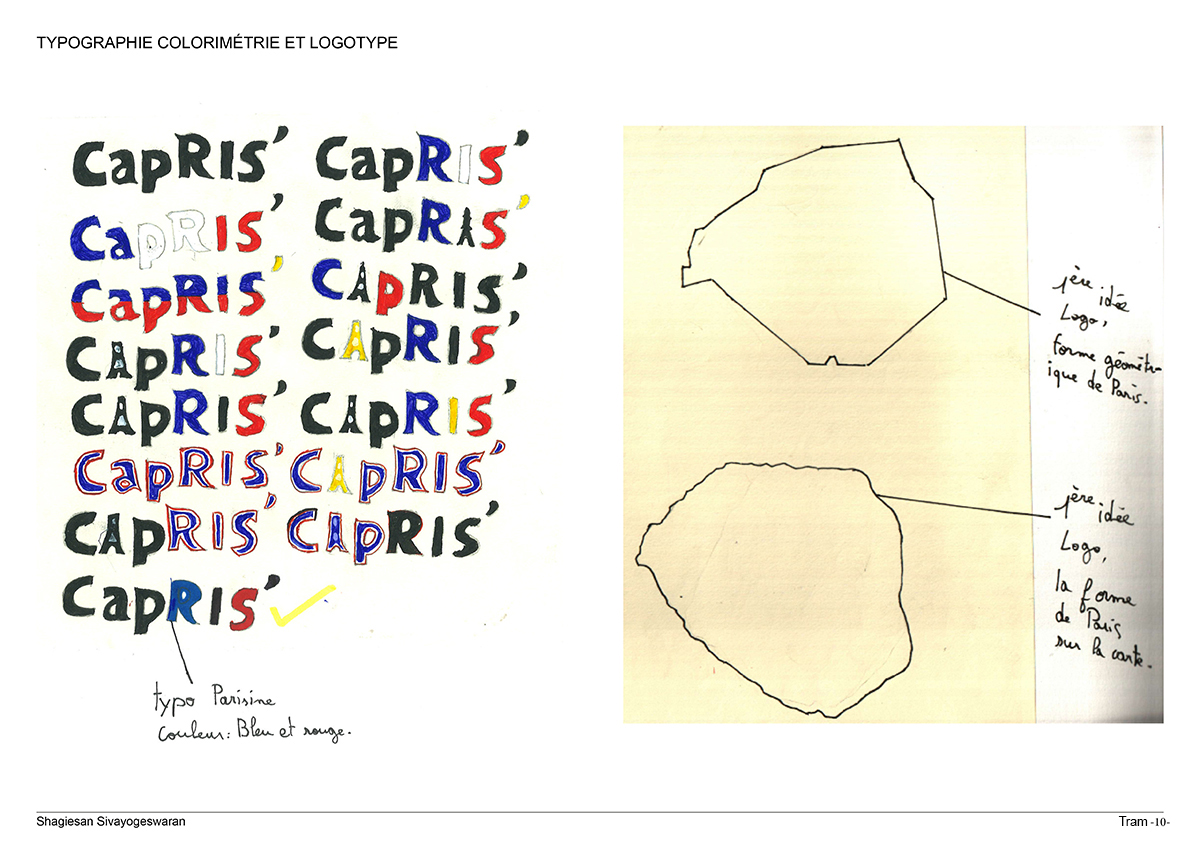 TYPOGRAPHIE COLORIMÉTRIE ET LOGOTYPE
CapRIS’ CapRIS’
CapRIS’ CapRIS’
CapRIS’ CApRIS’
CApRIS’ CApRIS’
CApRIS’ CApRIS’
CapRIS’ CApRIS’
CApRIS’ CApRIS’
CapRIS’
typo Parisine
Couleur: Bleu et rouge.
1ère idée
Logo,
forme géométr-
ique de Paris.
1ère idée
Logo,
la forme
de Paris
sur la carte.
Shagiesan Sivayogeswaran
Tram -10-